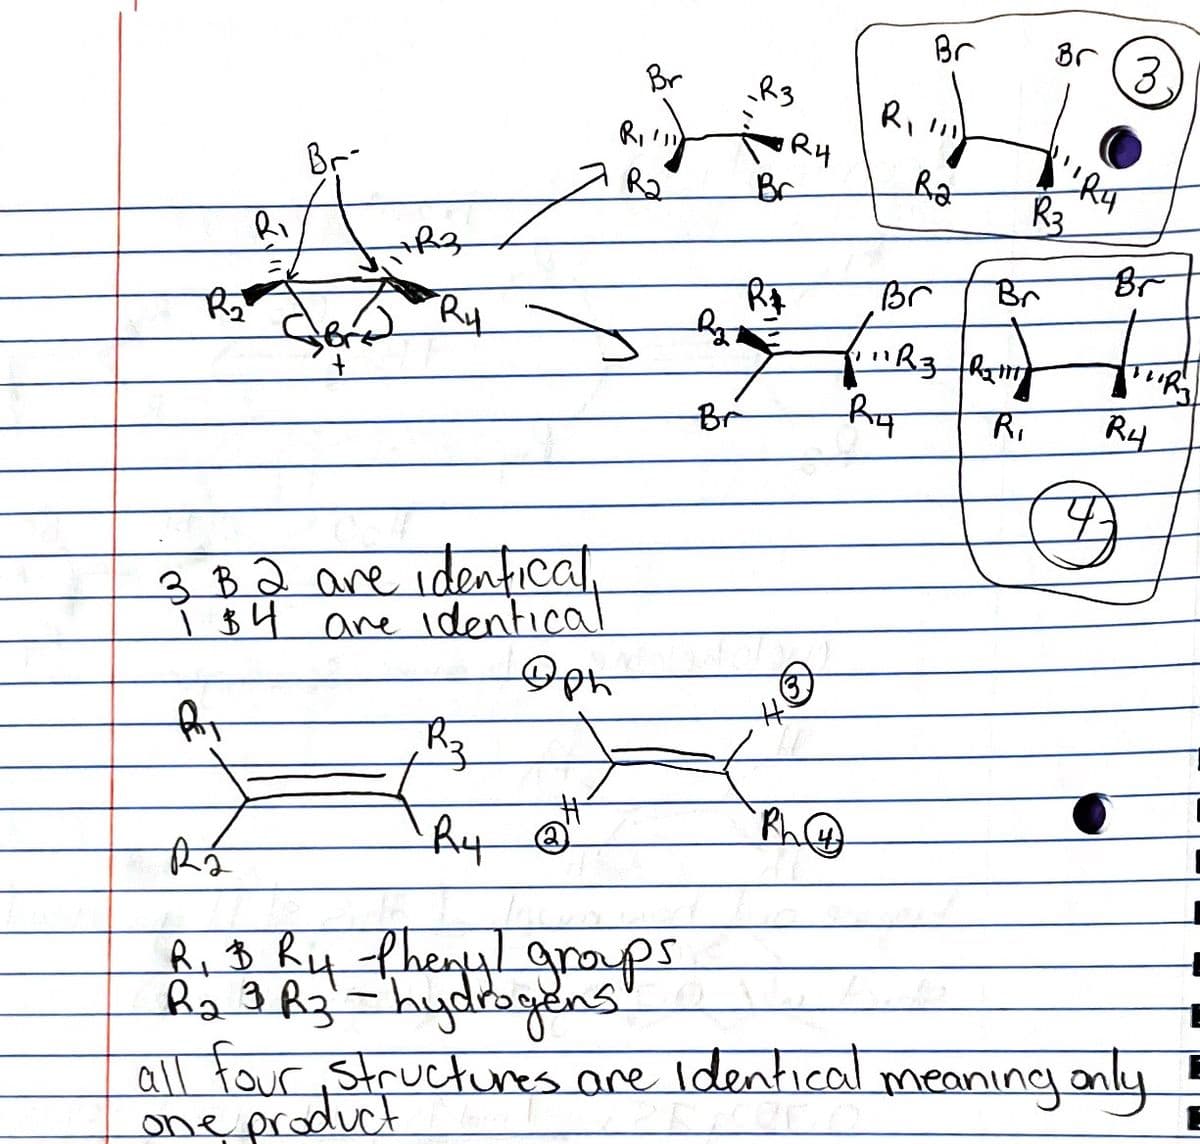 Br
Br
3,
Br
R3
R1
R4
R2
Br
R1
R2
R4
R3
Br-
R1
R3
R2
R4
Br
+
R1
Br
R2
R3
Br
R4
Br
Br
R2
R3
R1
R4
4,
3 & 2 are identical,
1 & 4 are identical
① Ph
③
H
R1
R3
R2
R4
② H
Ph ④
R1 & R4 - Phenyl groups
R2 & R3 - hydrogens
all four structures are identical meaning only
one product